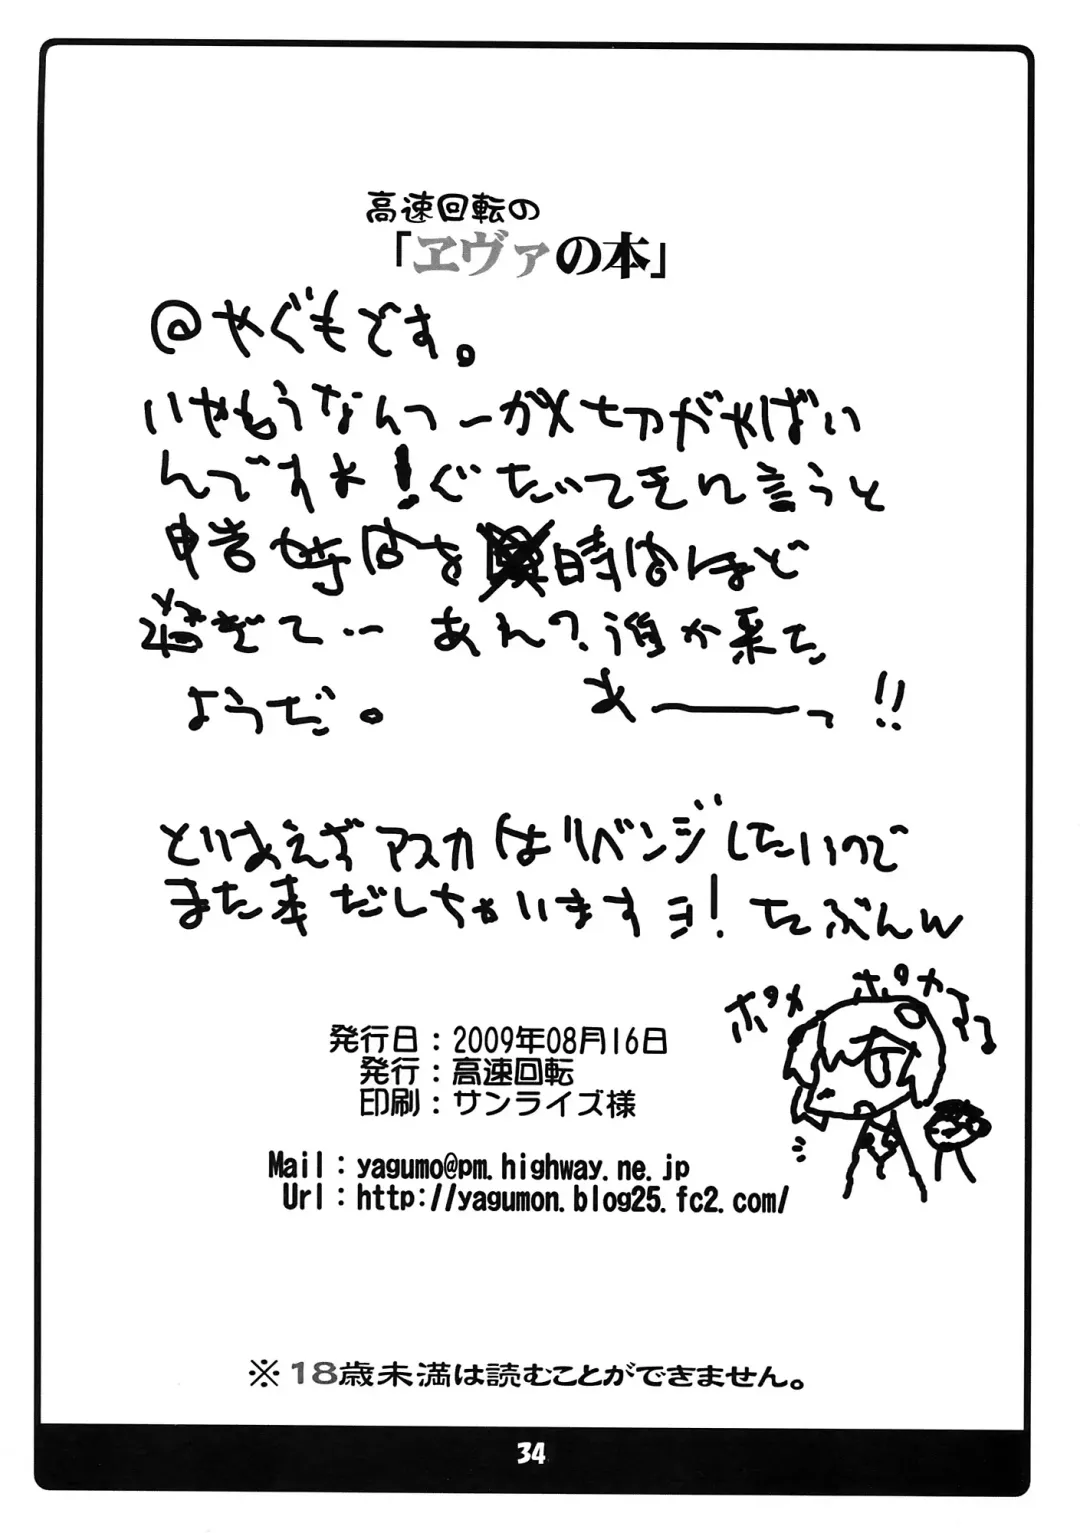 高速回転の
「ヱヴァの本」
@やぐもです。
いやもうなんつーか〆切がやばい
んですよ!ぐたいてきに言うと
申告時間を 時間ほど
過ぎて… あれ?誰か来た
ようだ。 あーーっ!!
とりあえずアスカはリベンジしたいので
また本だしちゃいますヨ! たぶんw
ポカ ポカ
発行日:2009年08月16日
発行:高速回転
印刷:サンライズ様
Mail:yagumo@pm.highway.ne.jp
Url:http://yagumon.blog25.fc2.com/
※18歳未満は読むことができません。
34